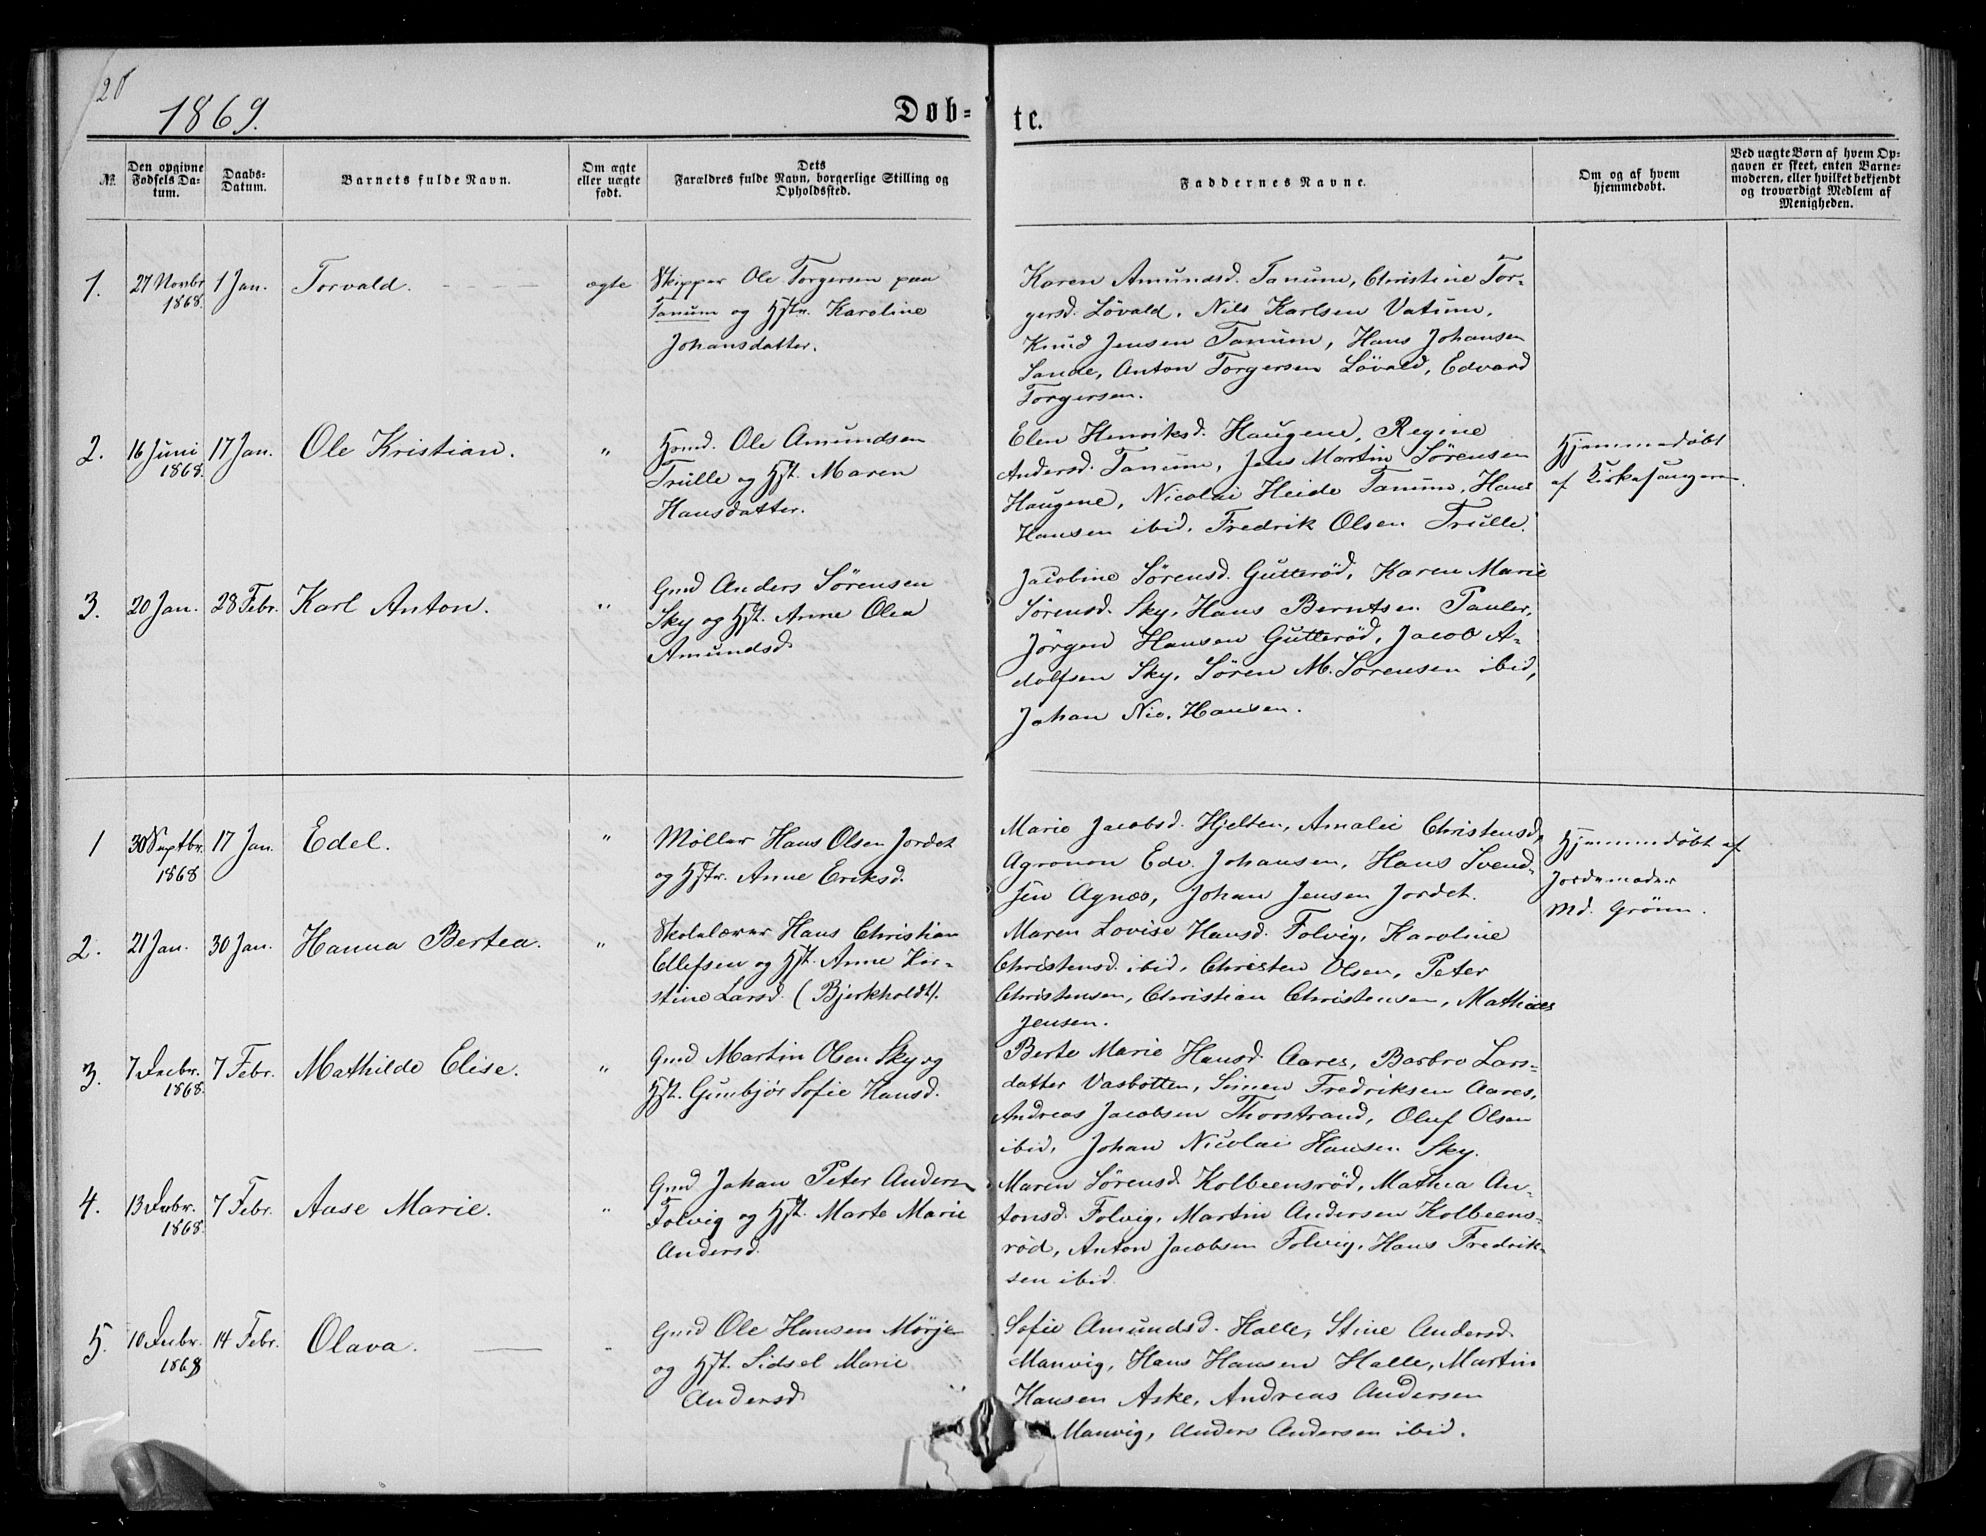 20
1869.
Døb-
te.
№.
Den opgivne
Fødsels Da-
tum.
Daabs-
Datum.
Barnets fulde Navn.
Om ægte
eller uægte
født.
Dets
Forældres fulde Navn, borgerlige Stilling og
Opholdssted.
Faddernes Navne.
Om og af hvem
hjemmedøbt.
Ved uægte Børn af hvem Op-
gaven er skeet, enten Barne-
moderen, eller hvilket bekjendt
og troværdigt Medlem af
Menigheden.
1.
27 Novbr
1868.
1 Jan.
Torvald.
ægte
Skipper Ole Torgersen paa
Tanum og Hstr. Karoline
Johansdatter.
Karen Amundsd. Tanum, Christine Tor-
gersd. Løvald, Nils Karlsen Vatum,
Knud Jensen Tanum, Hans Johansen
Sande, Anton Torgersen Løvald, Edvard
Torgersen.
2.
16 Juni
1868.
17 Jan.
Ole Kristian.
"
Hrmd. Ole Amundsen
Trulle og Hst. Maren
Hansdatter.
Elen Henriksd. Haugene, Regine
Andersd. Tanum, Jens Martin Sørensen
Haugene, Nicolai Heide Tanum, Hans
Hansen ibid, Fredrik Olsen Trulle.
Hjemmedøbt
af Kirkesangeren.
3.
20 Jan.
28 Febr.
Karl Anton.
"
Gmd Anders Sørensen
Sky og Hst. Anne Olea
Amundsd.
Jacobine Sørensd. Gutterød, Karen Marie
Sørensd. Sky, Hans Berntsen Pauler,
Jørgen Hansen Gutterød, Jacob A-
dolfsen Sky, Søren M. Sørensen ibid,
Johan Nic. Hansen.
1
30 Septbr.
1868
17 Jan.
Edel.
"
Møller Hans Olsen Jordet
og Hstr. Anne Eriksd.
Marie Jacobsd. Hjelten, Amalie Christensd,
Agronon Edv. Johansen, Hans Svend-
sen Agnæs, Johan Jensen Jordet.
Hjemmedøbt af
Jordemoder
Md. Grönn.
2.
21 Jan.
30 Jan.
Hanna Bertea.
"
Skolelærer Hans Christian
Ellefsen og Hst. Anne Kir-
stine Larsd. (Bjerkholdt).
Maren Lovise Hansd. Folvig, Karoline
Christensd. ibid, Christen Olsen, Peter
Christensen, Christian Christensen, Mathias
Jensen.
3.
7 Decbr.
1868.
7 Febr.
Mathilde Elise.
"
Gmd Martin Olsen Sky og
Hst. Gunbjør Sofie Hansd.
Berte Marie Hansd. Aares, Barbro Lars-
datter Vasbotten, Simen Fredriksen Aares,
Andreas Jacobsen Thorstrand, Oluf Olsen
ibid, Johan Nicolai Hansen Sky.
4.
13 Decbr.
1868.
7 Febr.
Aase Marie.
"
Gmd Johan Peter Andersn
Folvig og Hst. Marte Marie
Andersd.
Maren Sørensd. Kolbeensrød, Mathea An-
tonsd. Folvig, Martin Andersen Kolbeens-
rød, Anton Jacobsen Folvig, Hans Fredrik-
sen ibid.
5.
10 Decbr.
1868
14 Febr.
Olava.
"
Gmd Ole Hansen Mørje
og Hst. Sidsel Marie
Andersd.
Sofie Amundsd. Halle, Stine Andersd.
Manvig, Hans Hansen Halle, Martin
Hansen Aske, Andreas Andersen
Manvig, Anders Andersen ibid.